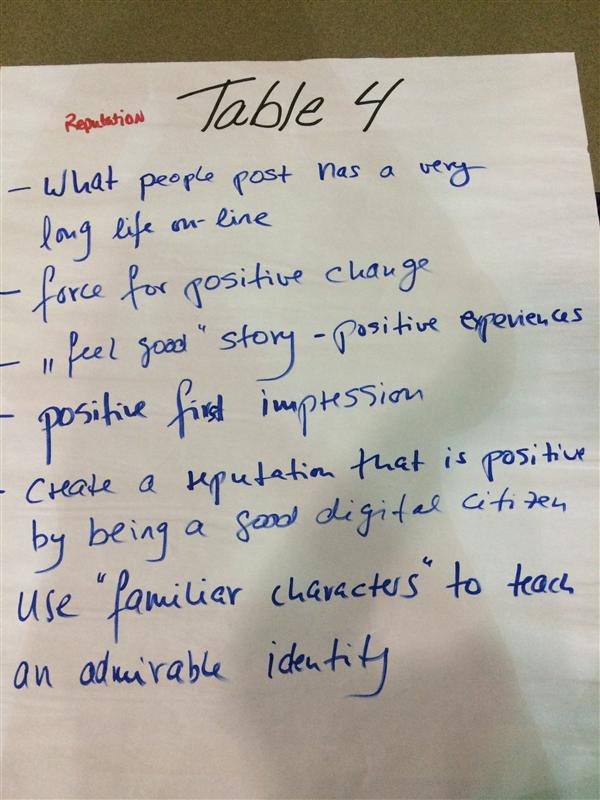 Reputation Table 4
- What people post has a very
long life on-line
- force for positive change
- „feel good" story - positive experiences
- positive first impression
- Create a reputation that is positive
by being a good digital citizen
Use "familiar characters" to teach
an admirable identity